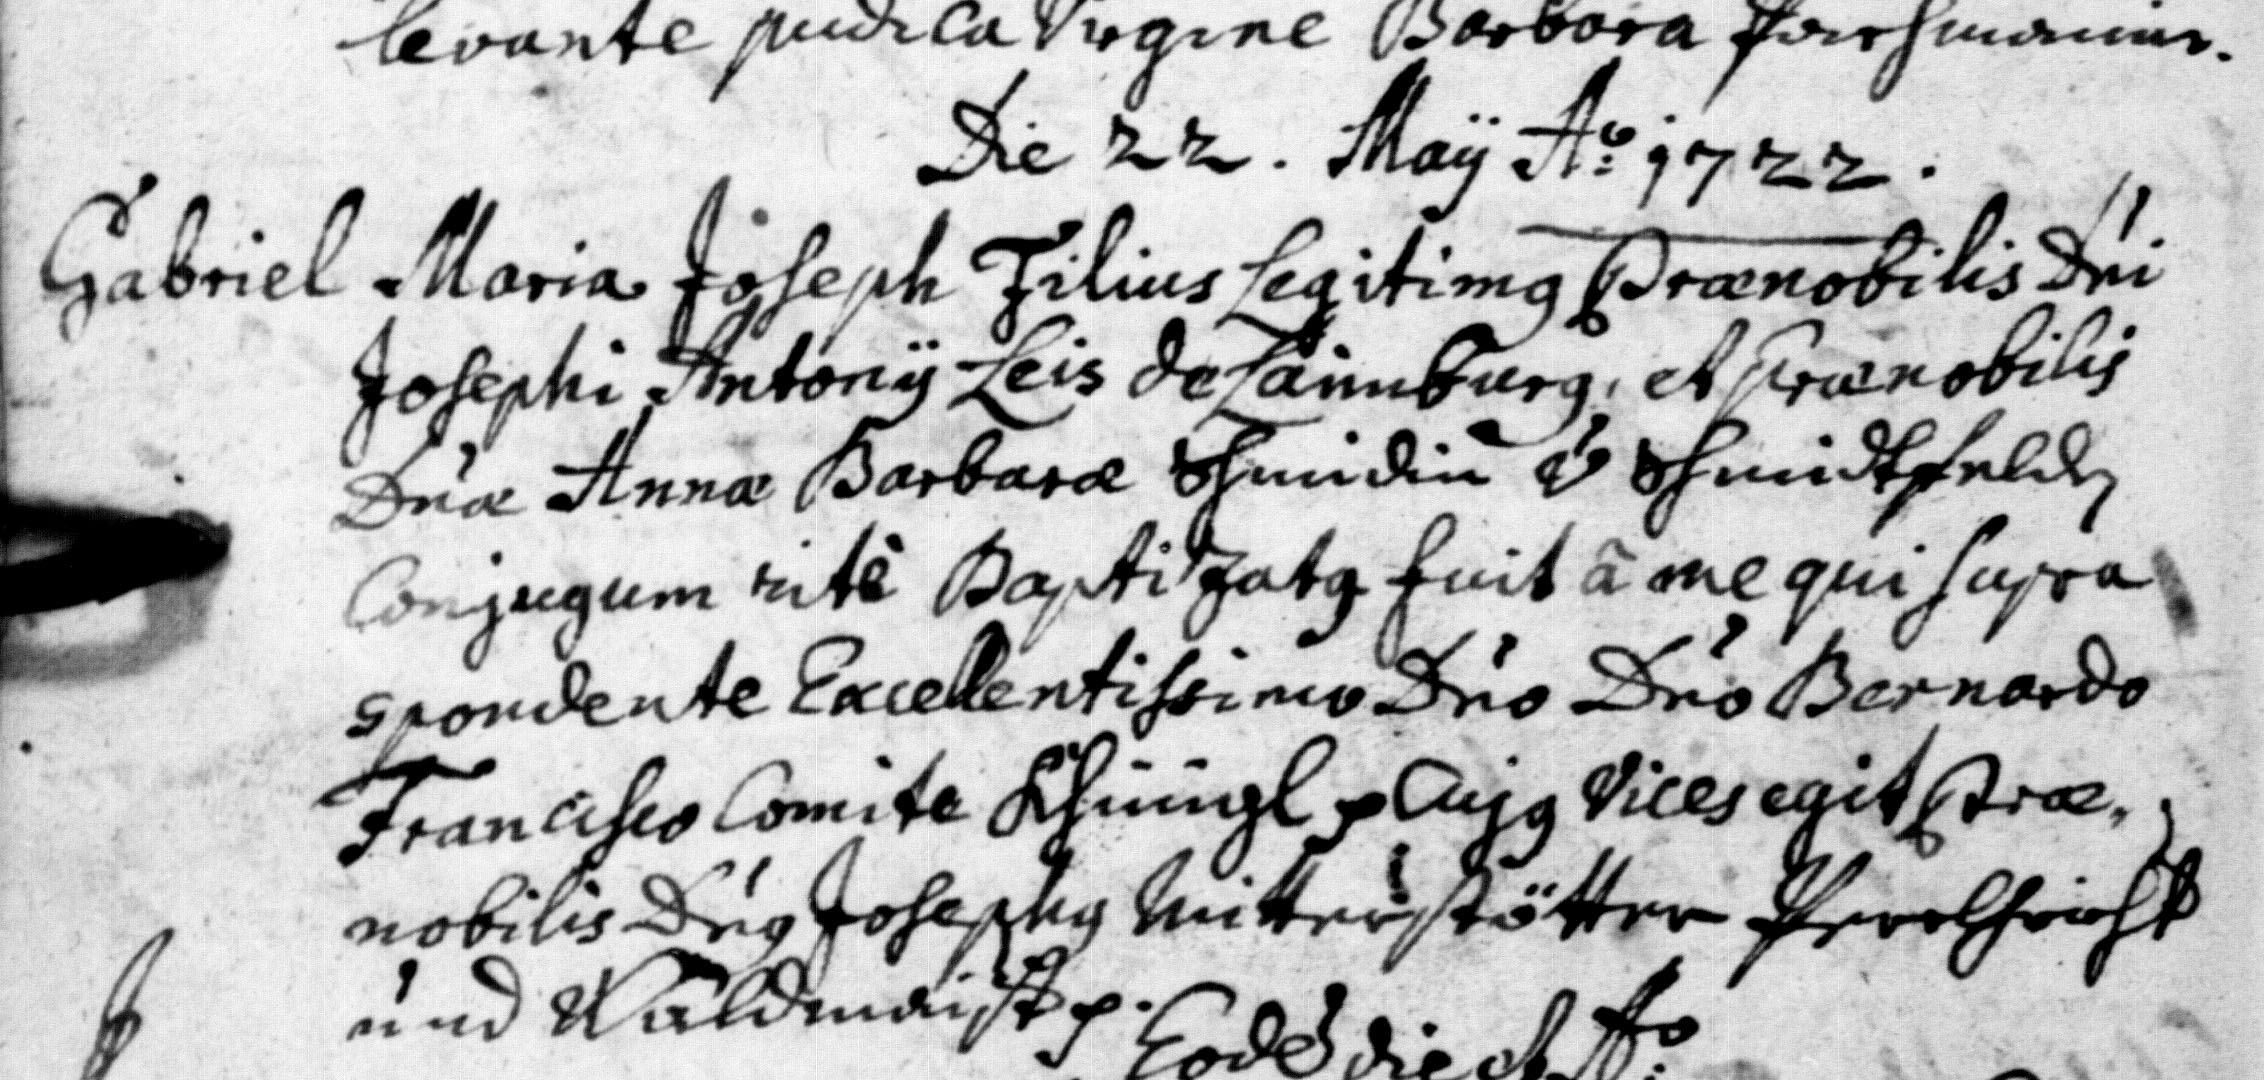 levante pudica Virgine Barbara
Die 22. Maÿ Aº: 1722.
Gabriel Maria Joseph Filius Legitimꝯ Prænobilis Dn̄i
Josephi Antonÿ Leis de Läimburg, et Prænobilis
Dn̄æ Annæ Barbaræ Schmidin v̄ Schmidtfelden
Conjugum ritè Baptizatꝯ fuit â me qui supra
spondente Excellentissimo Dn̄o Dn̄o Bernardo
Francisco Comite Khüngl Cujꝯ Vices egit Præ,
nobilis Dn̄ꝯ Josephꝯ Mitterstötter
und Waldmaist
Eodē die et Aº: